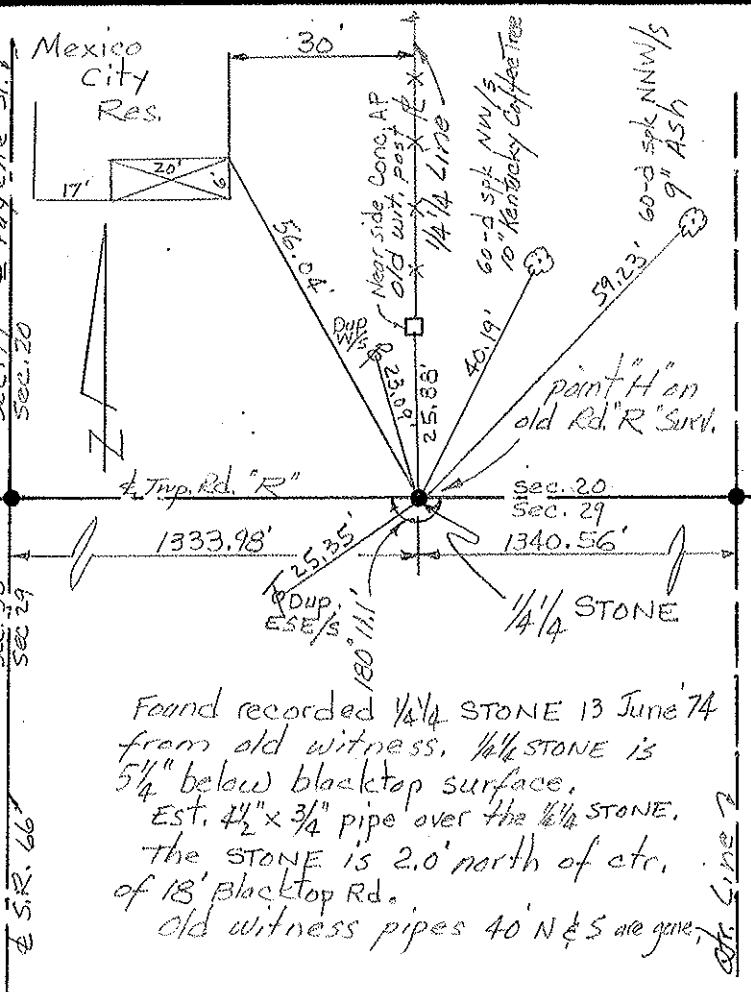 Mexico
City
Res.
30'
20'
9'
17'
56.04'
Near side Conc. AP
old wit. post
1/4 1/4 Line
60-d spk NW/S
10" Kentucky Coffee Tree
60-d spk NNW/S
9" Ash
Dup
W/S
23.09'
25.88'
40.19'
59.23'
point "H" on
old Rd. "R" Surv.
Sec. 20
℄ Twp. Rd. "R"
Sec. 20
Sec. 29
1333.98'
1340.56'
25.35'
Dup.
ESE/S
180° 11.1'
1/4 1/4 STONE
Sec 29
Found recorded 1/4 1/4 STONE 13 June '74
from old witness. 1/4 1/4 STONE is
5 1/4" below blacktop surface.
Est. 4 1/2" x 3/4" pipe over the 1/4 1/4 STONE.
The STONE is 2.0' north of ctr.
of 18' Blacktop Rd.
Old witness pipes 40' N & S are gone.
℄ S.R. 66
Qtr. Line